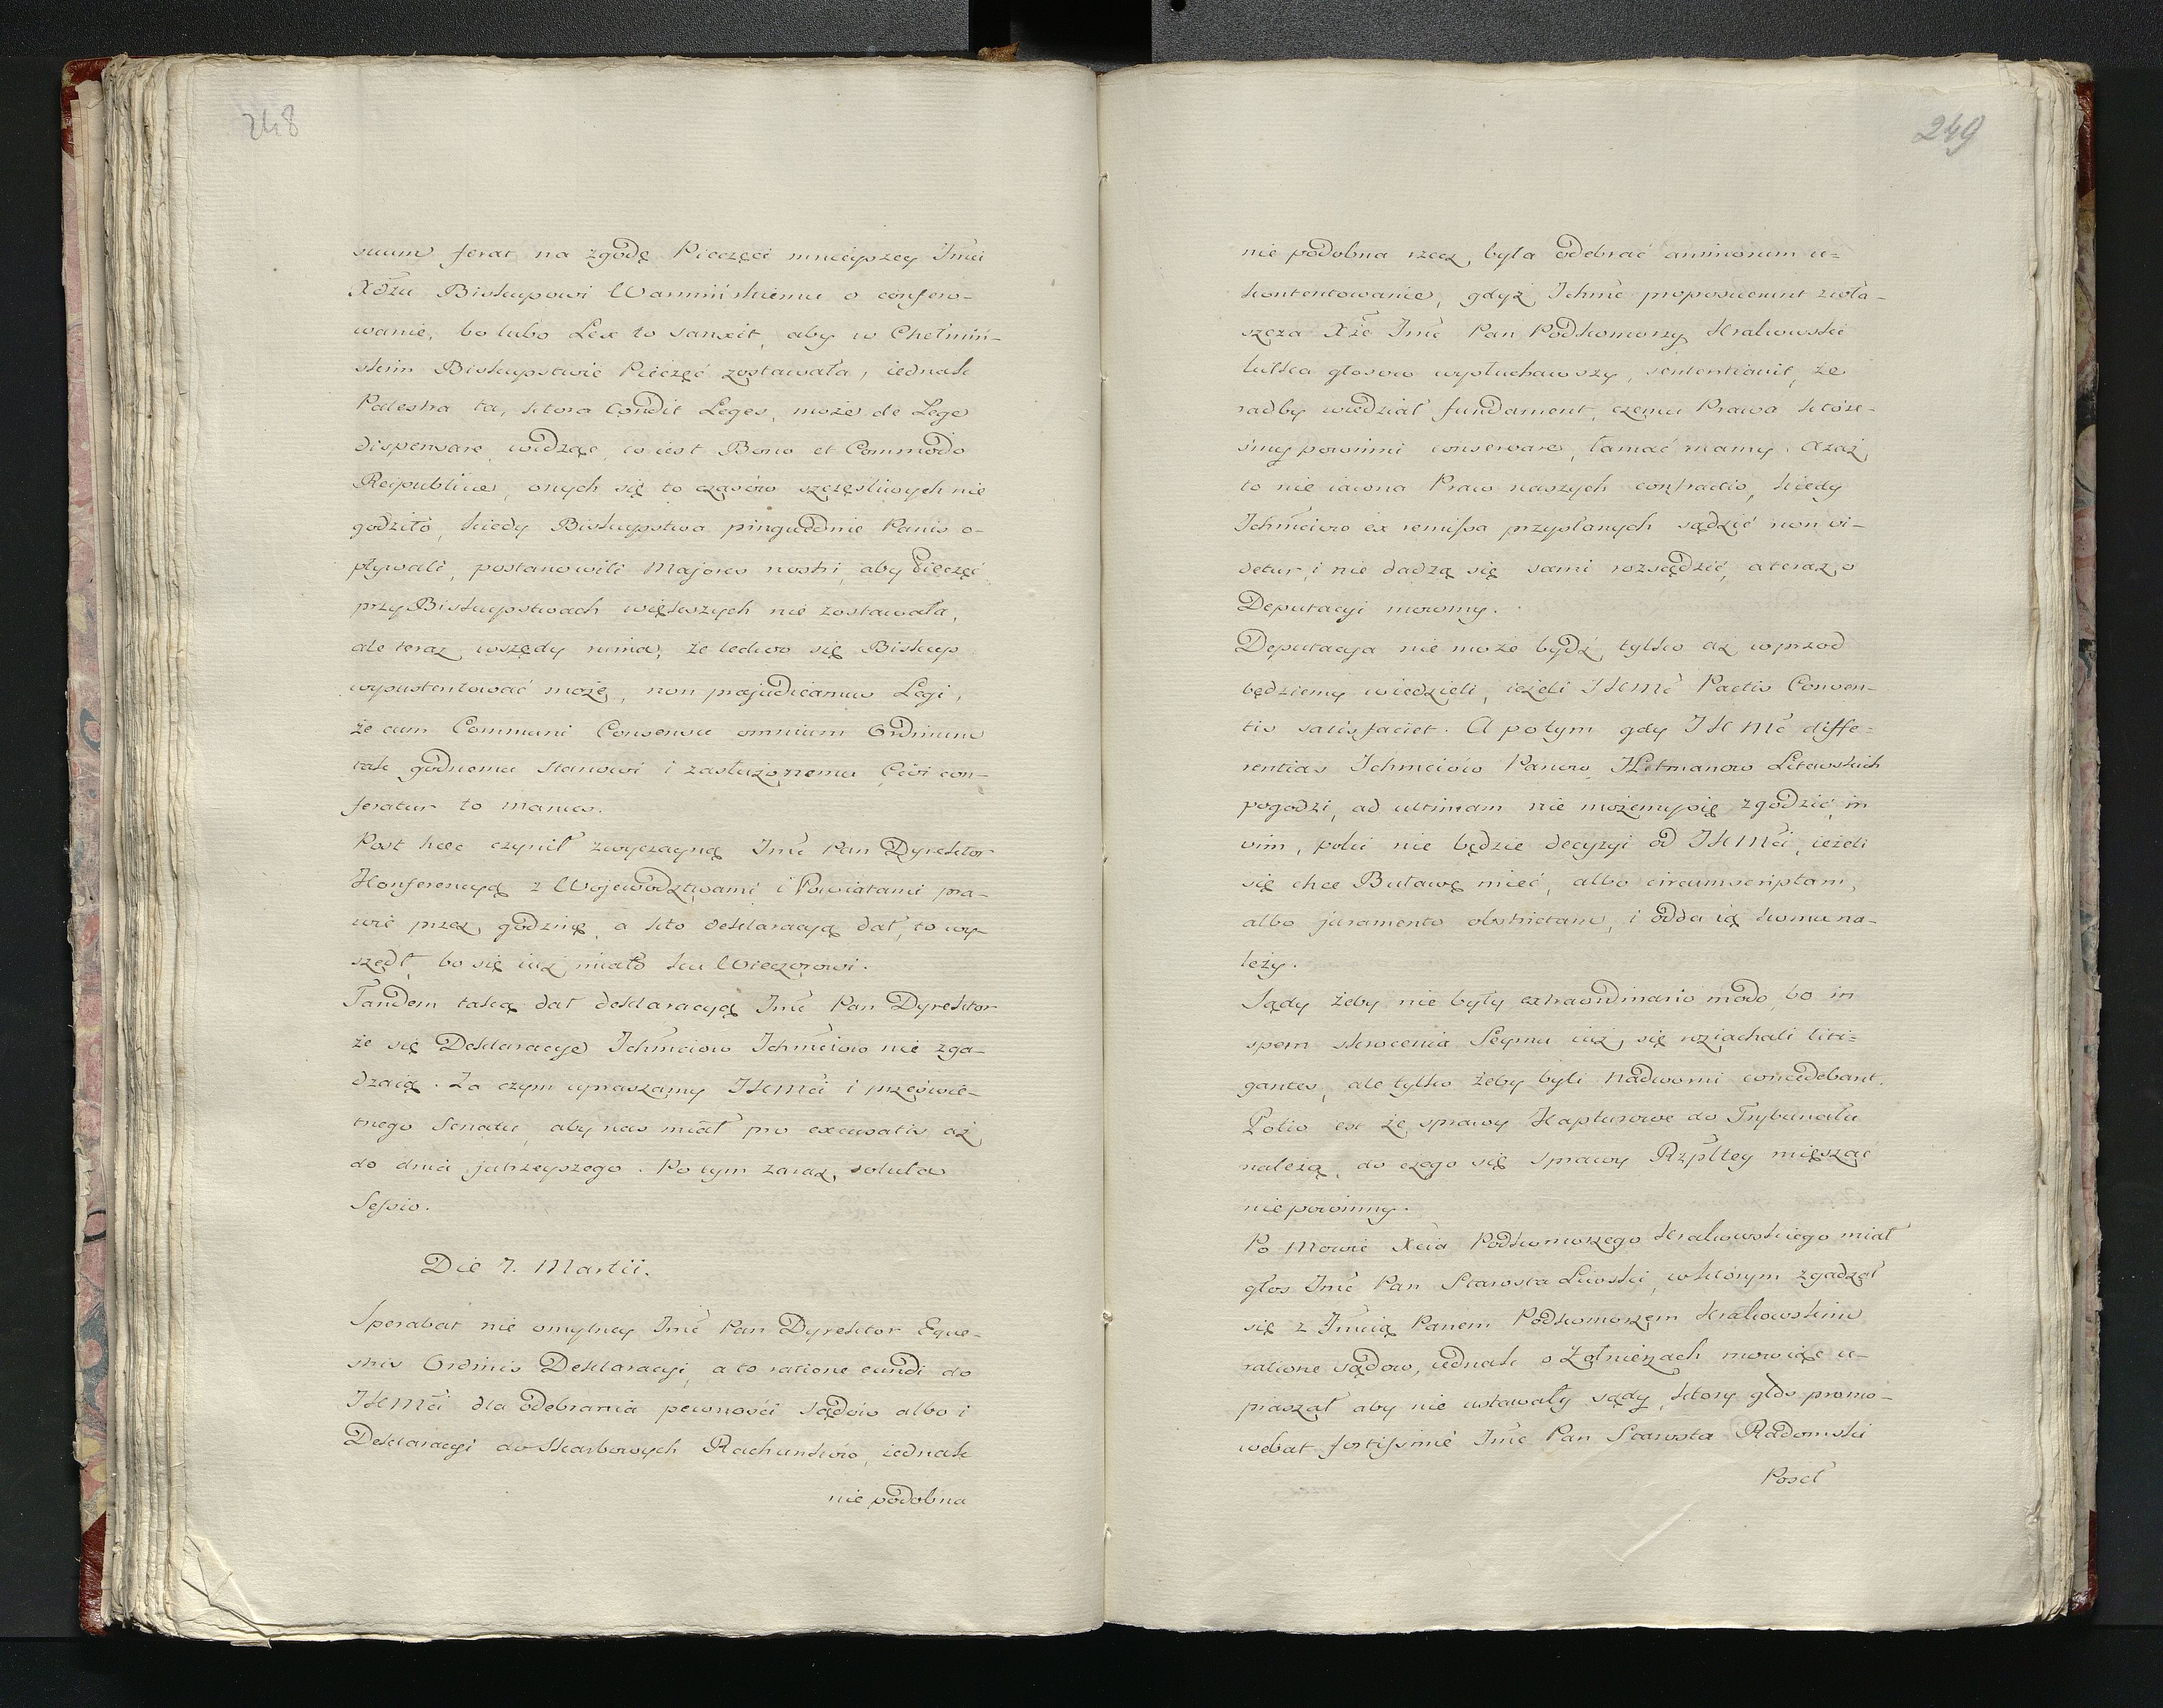 248
suum ferat na zgodę Pieczęci mnieyszey Jmci
Xdzu Biskupowi Warmińskiemu o confero-
wanie, bo lubo Lex to sanxit, aby w Chełmiń-
skim Biskupstwie Pieczęć zostawała, iednak
Palestra ta, ktora Condit Leges, może de Lege
dispensare widząc, co iest Bono et Commodo
Reipublicæ, onych się to czasów szczęsliwych nie
godziło, kiedy Biskupstwa pinguedine Panis o-
pływali, postanowili Majores nostri, aby Pieczęć
przy Biskupstwach większych nie zostawała,
ale teraz wszędy ruina, że ledwo się Biskup
wysustentować może, non præjudicamus Legi,
że cum Communi Consensu omnium Ordinum
tak godnemu Stanowi i zasłużonemu Civi con-
feratur to munus.
Post hæc czynił zwyczayną Jmć Pan Dyrektor
Konferencyą z Wojewodztwami i Powiatami pra-
wie przez godzinę, a kto deklaracyą dał, to wy-
szedł, bo się iuż miało ku Wieczorowi.
Tandem taką dał deklaracyą Jmć Pan Dyrektor
że się Deklaracye Ichmciow Ichmciow nie zga-
dzaią. Za czym upraszamy JKMci i prześwie-
tnego Senatu, aby nas miał pro excusatis aż
do dnia jutrzeyszego. Po tym zaraz soluta
Sessio.
Die 7. Martii.
Sperabat nie omylney Jmć Pan Dyrektor Eque-
stris Ordinis Deklaracyi, a to ratione eundi do
JKMci dla odebrania pewności Sądów albo i
Deklaracyi do Skarbowych Rachunków, iednak
nie podobna
249
nie podobna rzecz, była odebrać animorum u-
kontentowanie, gdyż Ichmć proposuerunt zwła-
szcza Xże Jmć Pan Podkomorzy Krakowski
kilka głosow wysłuchawszy, sentencianit, że
radby wiedział fundament, czemu Prawa któze-
smy powinni conservare, łamać mamy. Azaż
to nie iawna Praw naszych contradio, kiedy
Ichmciow ex remissa przysłanych sądzić non vi-
detur, i nie dadzą się sami rozsądzić, a teraz o
Deputacyi mowmy.
Deputacya nie może bydź, tylko aż wprzod
będziemy wiedzieli, ieżeli JKMć Pactis Conven-
tis satisfaciet. A potym gdy JKMć diffe-
rentias Ichmciów Panow Hetmanow Litewskich
pogodzi, ad ultimam nie możemysię zgodzić, in
vim, poki nie będzie decyzyi od JKMci, ieżeli
się chce Buławę mieć, albo circumscriptam,
albo juramento obstrictam, i odda ią komu na-
leży.
Sądy żeby nie były extraordinario modo, bo in
spem skrocenia Seymu iuż się roziachali liti-
gantes, ale tylko żeby byli nadworni concedebant.
Polio est że sprawy Kapturowe do Trybunału
należą, do czego się sprawy Rzpltey mięszać
niepowinny.
Po mowie Xcia Podkomorzego Krakowskiego miał
głos Jmć Pan Starosta Liwski, w którym zgadzał
się z Jmcią Panem Podkomorzem Krakowskim
ratione sądow, iednak o Żołnierzach mowiąc u-
praszał aby nie ustawały sądy, ktory głos promo-
vebat fortissime Jmć Pan Starosta Radomski
Poseł